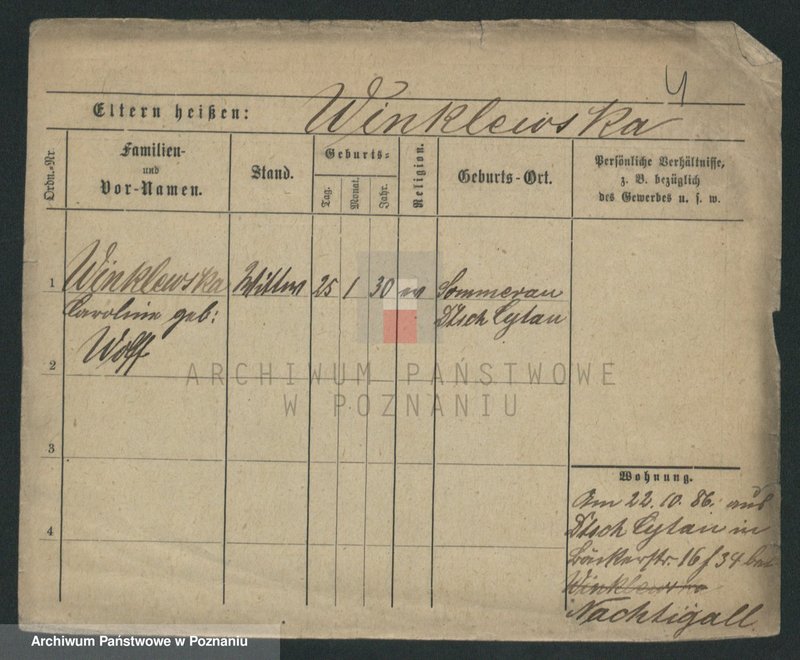 4
Eltern heißen: Winklewska
Ordn.-Nr.
Familien-
und
Vor-Namen.
Stand.
Geburts-
Tag.
Monat.
Jahr.
Religion.
Geburts-Ort.
Persönliche Verhältnisse,
z. B. bezüglich
des Gewerbes u. s. w.
1 Winklewska Wittw 25 1 30 ev Sommerau
Caroline geb: Dtsch Cylau
Wolff
2
3
4
Wohnung.
Am 22.10.86. aus
Dtsch Cylau in
Bäckerstr. 16 f 34 bei
Winklewska
Nachtigall
ARCHIWUM PAŃSTWOWE
W POZNANIU
Archiwum Państwowe w Poznaniu